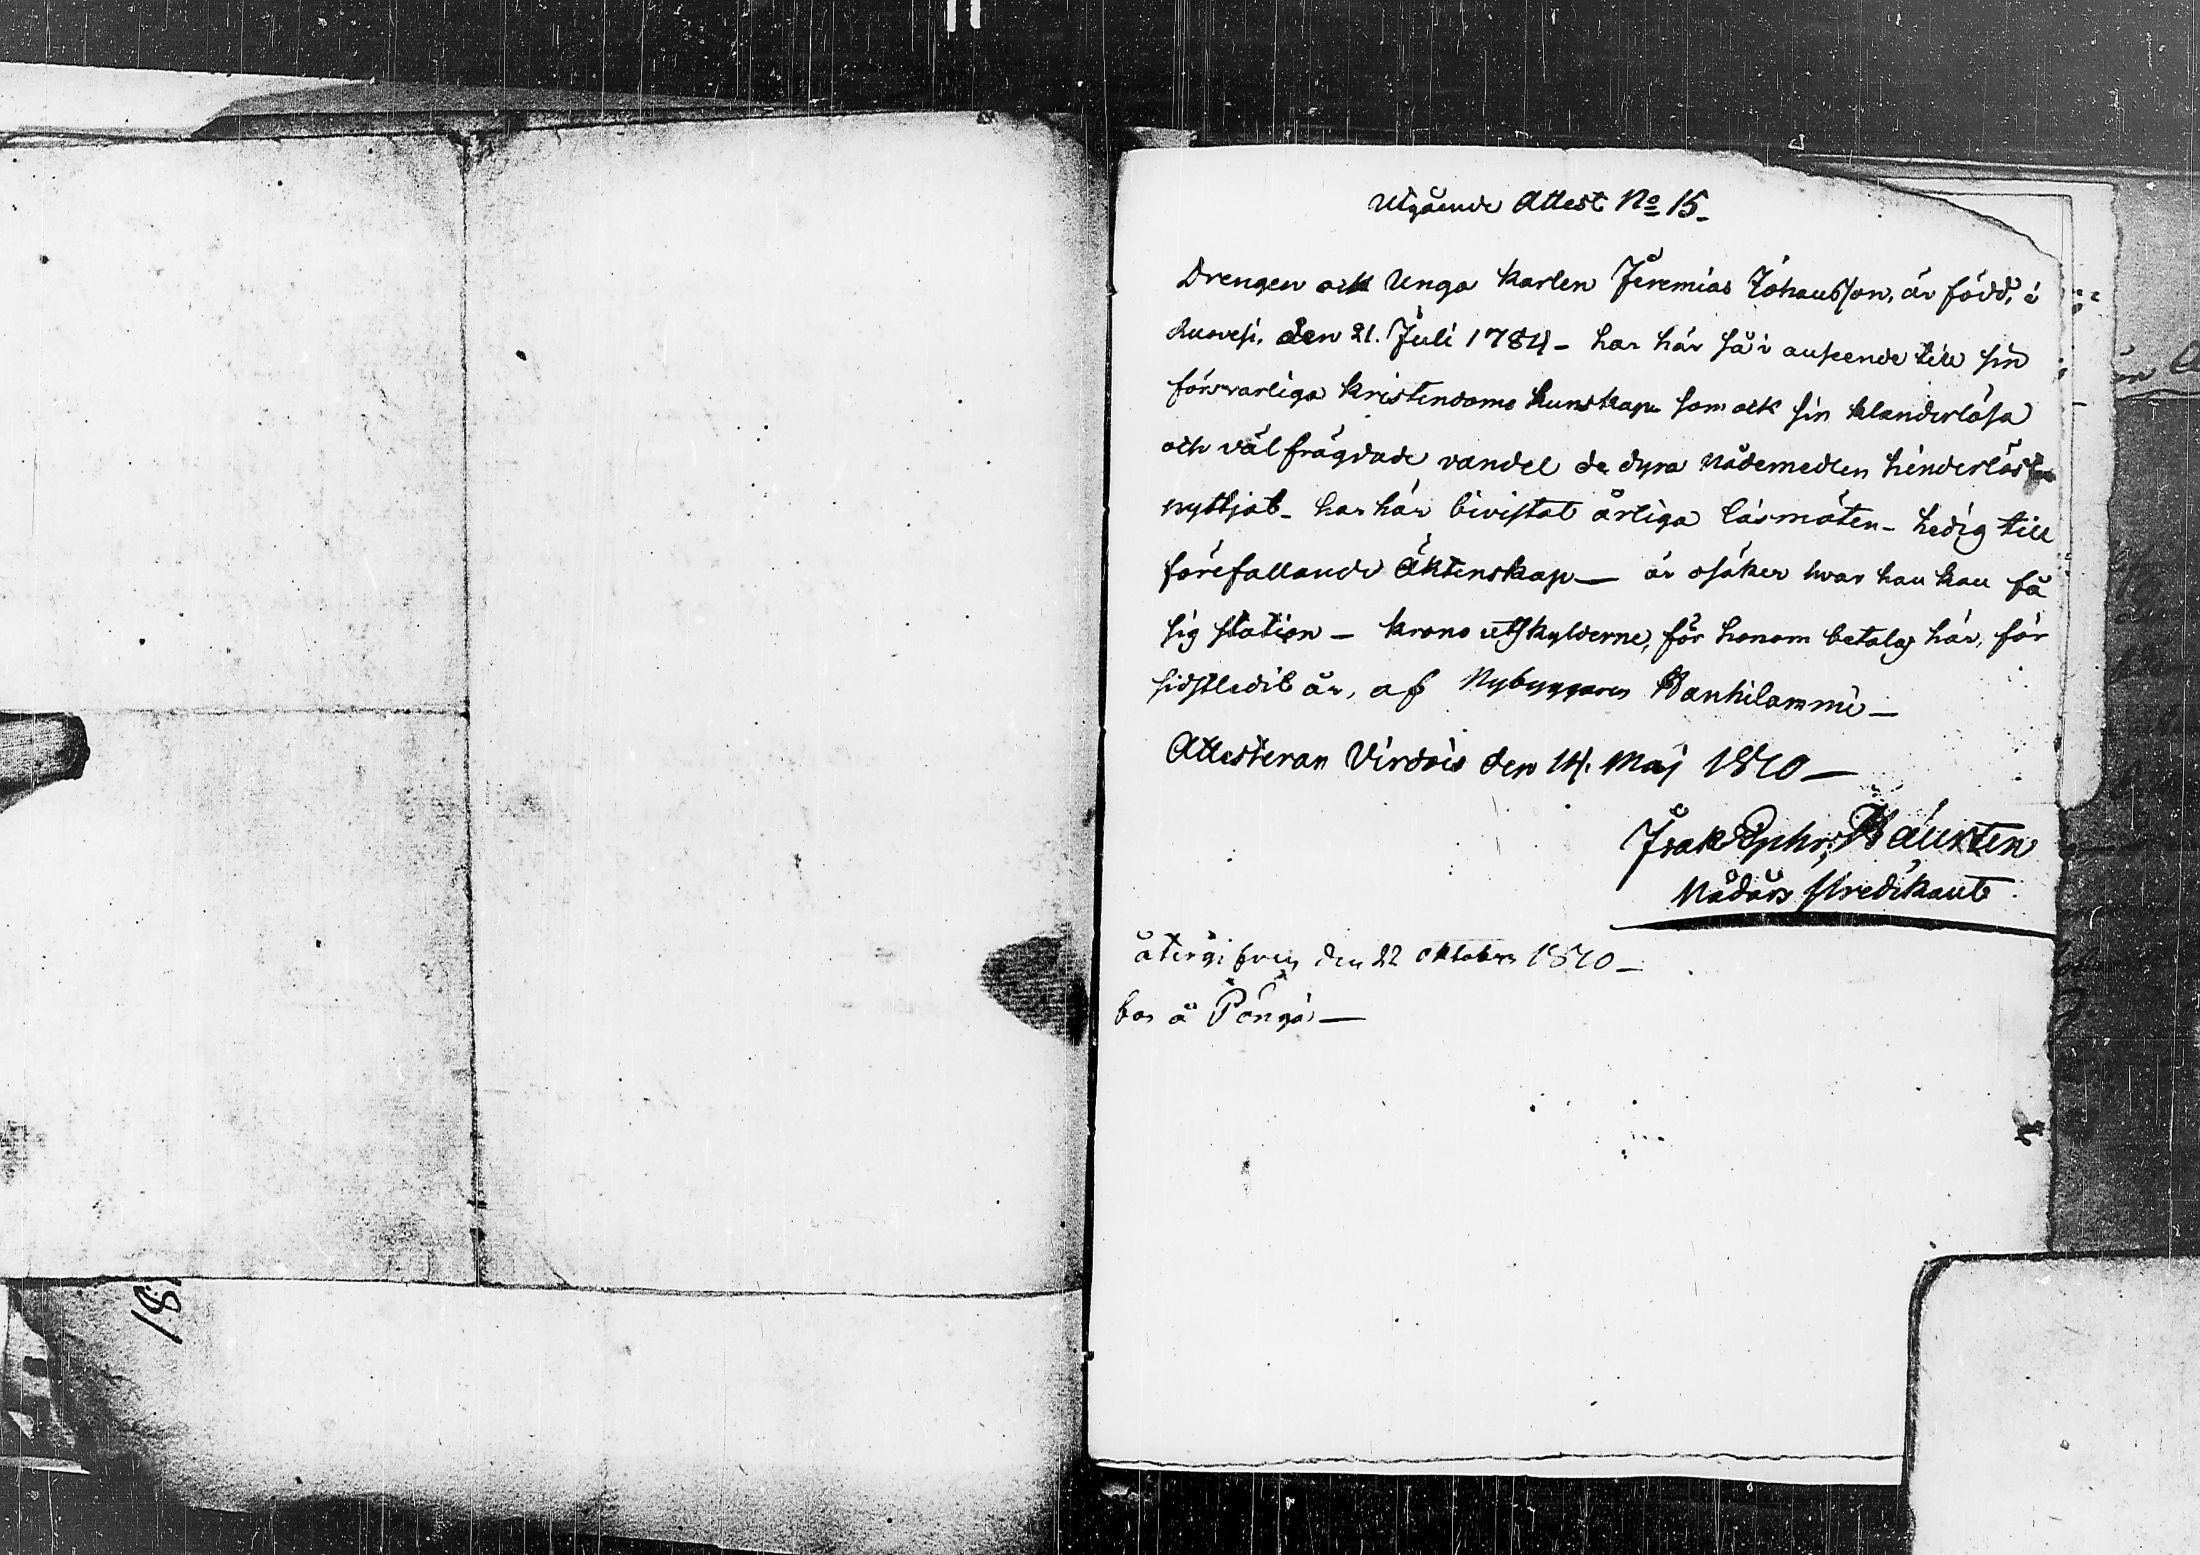 Utgående Attest No 15.
Drengen ock Unga karlen Jeremias Johansson, är född, i
Ruovesi, den 21. Juli 1784 - har här så i anseende till sin
försvarliga kristendoms kunskap som ock sin klanderlösa
och väl frägdade vandel de dyra nådemedlen hinderlöst
nyttjat - har här bivistat årliga läsmöten - ledig till
förefallande Äktenskap - är osäker hvar han kan få
sig station - krono utskylderne, för honom betalas här, för
sidstledit år, af Nybyggaren Hankilammi -
Attesteran Virdois den 14. Maj 1810 -
Isak Ephr.
Nådårs Predikant
återgifven den 22 oktober 1810 -
bor å
18